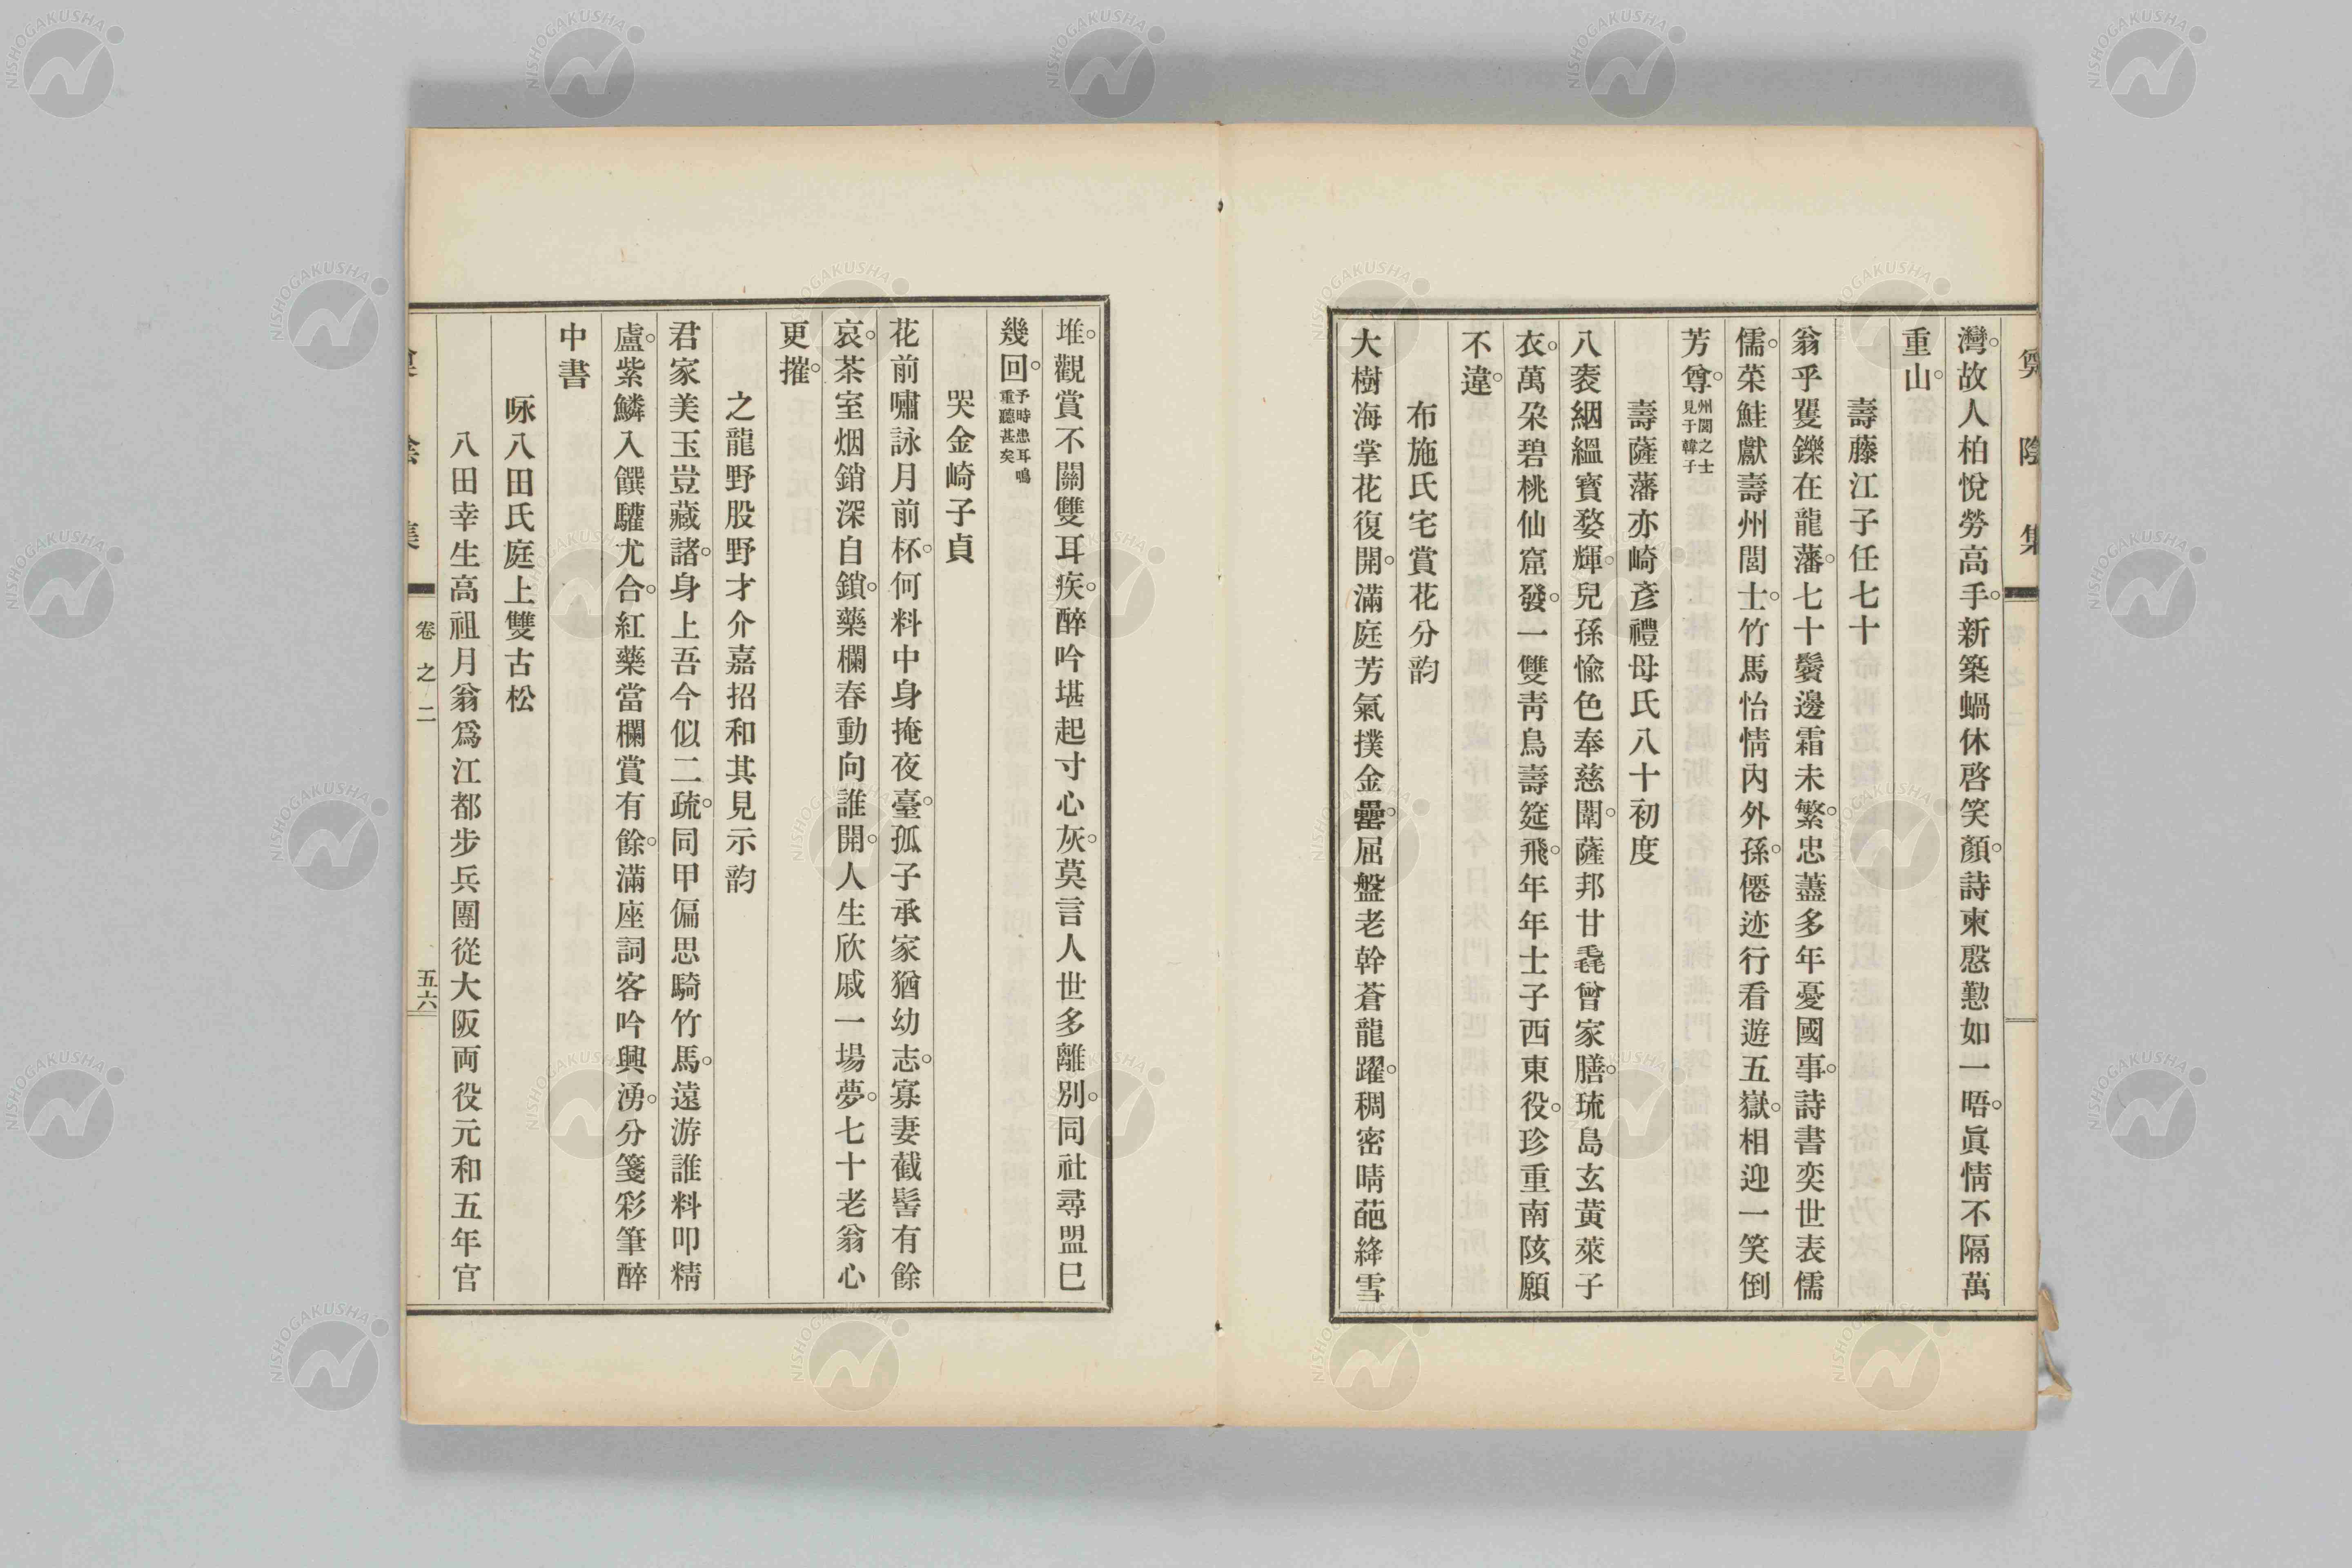 灣。故人柏悅勞高手。新築蝸休啓笑顏。詩柬慇懃如一晤。眞情不隔萬
重山。
壽藤江子任七十
翁乎矍鑠在龍藩。七十鬢邊霜未繁。忠藎多年憂國事。詩書奕世表儒
儒。菜鮭獻壽州閭士。竹馬怡情內外孫。僊迹行看遊五嶽。相迎一笑倒
芳尊。州閭之士見于韓子
壽薩藩亦崎彥禮母氏八十初度
八袠絪縕寶婺輝。兒孫愉色奉慈闈。薩邦甘毳曾家膳。琉島玄黃萊子
衣。萬朶碧桃仙窟發。一雙靑鳥壽筵飛。年年士子西東役。珍重南陔願
不違。
布施氏宅賞花分韵
大樹海掌花復開。滿庭芳氣撲金罍。屈盤老幹蒼龍躍。稠密晴葩絳雪
堆。觀賞不關雙耳疾。醉吟堪起寸心灰。莫言人世多離別。同社尋盟已
幾回。予時患耳鳴重聽甚矣
哭金崎子貞
花前嘯詠月前杯。何料中身掩夜臺。孤子承家猶幼志。寡妻截髻有餘
哀。茶室烟銷深自鎖。藥欄春動向誰開。人生欣戚一場夢。七十老翁心
更摧。
之龍野股野才介嘉招和其見示韵
君家美玉豈藏諸。身上吾今似二疏。同甲偏思騎竹馬。遠游誰料叩精
盧。紫鱗入饌驩尤合。紅藥當欄賞有餘。滿座詞客吟興湧。分箋彩筆醉
中書
咏八田氏庭上雙古松
八田幸生高祖月翁爲江都步兵團從大阪両役元和五年官
卷之二
五六